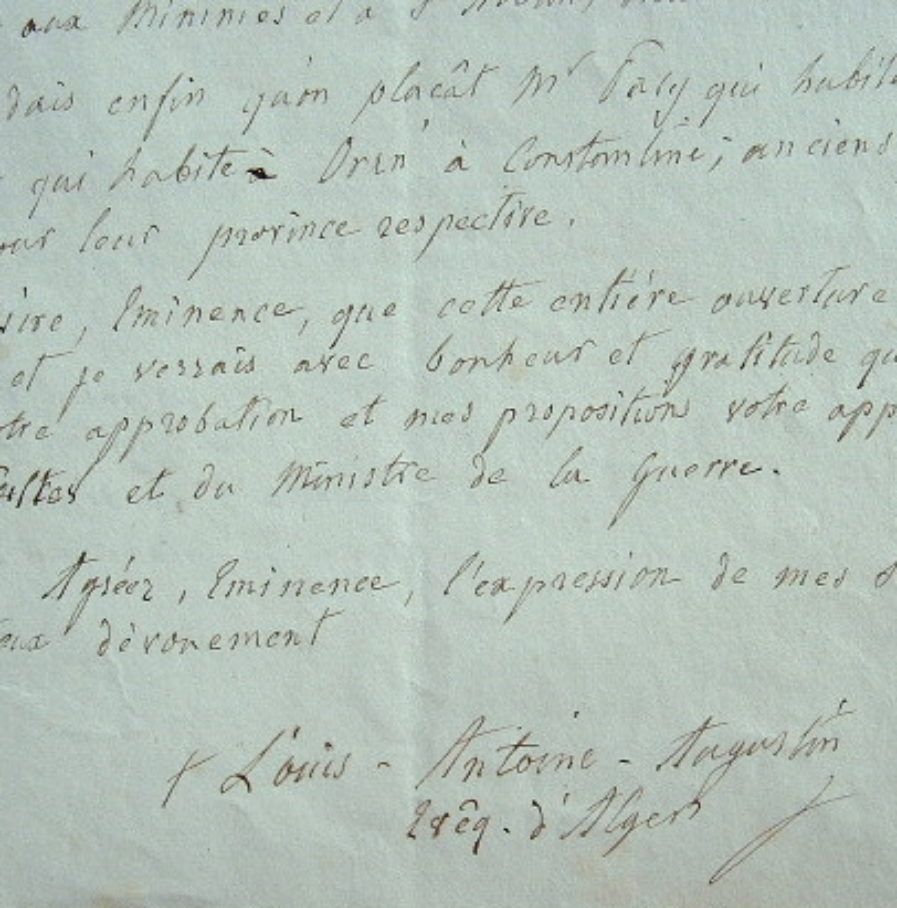 aux Minimes et à
dais enfin qu'on placât Mr Paly qui habite
qui habite à Oran à Constantine; anciens
leur province respective.
Eminence, que cette entière ouverture
et je verrais avec bonheur et gratitude qu
approbation et mes propositions votre app
et du Ministre de la Guerre.
Agréez, Eminence, l'expression de mes s
eux dévouement
+ Louis - Antoine - Augustin
Evêq. d'Alger